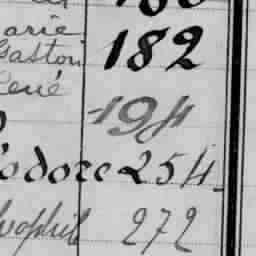 arie
Gaston 182
René
194
odore 254
ophil 272